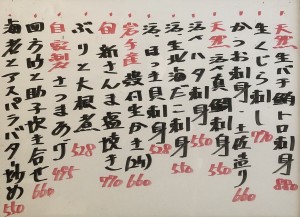 天然 生バチ鮪トロ刺身 880
生くじら刺し 770
かつお刺身・土佐造り 660
天然 活〆真鯛刺身 550
活〆ハタ刺身 550
活生北海だこ刺身
活ほっき貝刺身 528
岩手産 殻付生かき 660
旬 新さんま塩焼き 770
ぶりと大根煮 528
自家製 さつまあげ 495
四方竹と助子炊き合せ 660
海老とアスパラバタ炒め 550